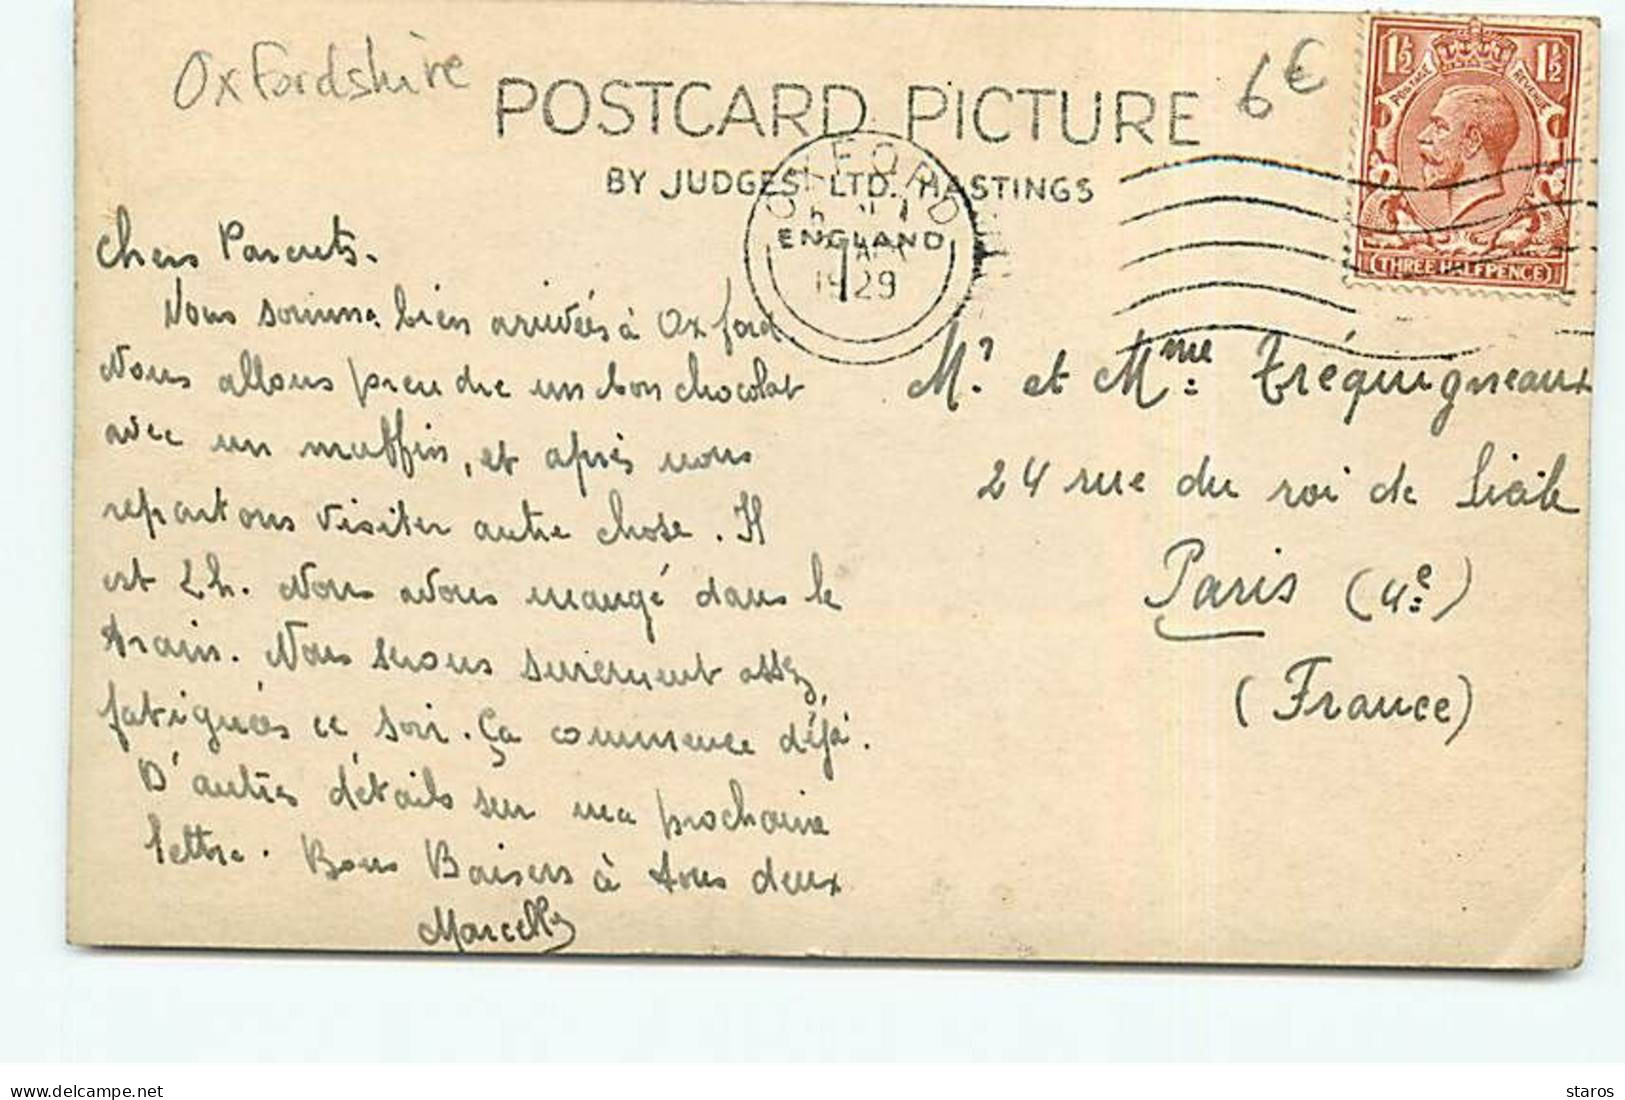 Oxfordshire
6€
POSTCARD PICTURE
BY JUDGES' LTD. HASTINGS
1½ 1½
POSTAGE REVENUE
(THREE HALFPENCE)
OXFORD
ENGLAND
1929
Chers Parents.
Nous sommes bien arrivées à Oxford
Nous allons prendre un bon chocolat
avec un muffin, et après nous
repartons visiter autre chose. Il
est 2h. Nous avons mangé dans le
train. Nous serons surement assez
fatiguées ce soir. Ça commence déjà.
D'autres détails sur ma prochaine
lettre. Bons Baisers à tous deux
Marcelle
Mr et Mme Tréquigneaux
24 rue du roi de Sicile
Paris (4e)
(France)
www.delcampe.net
staros